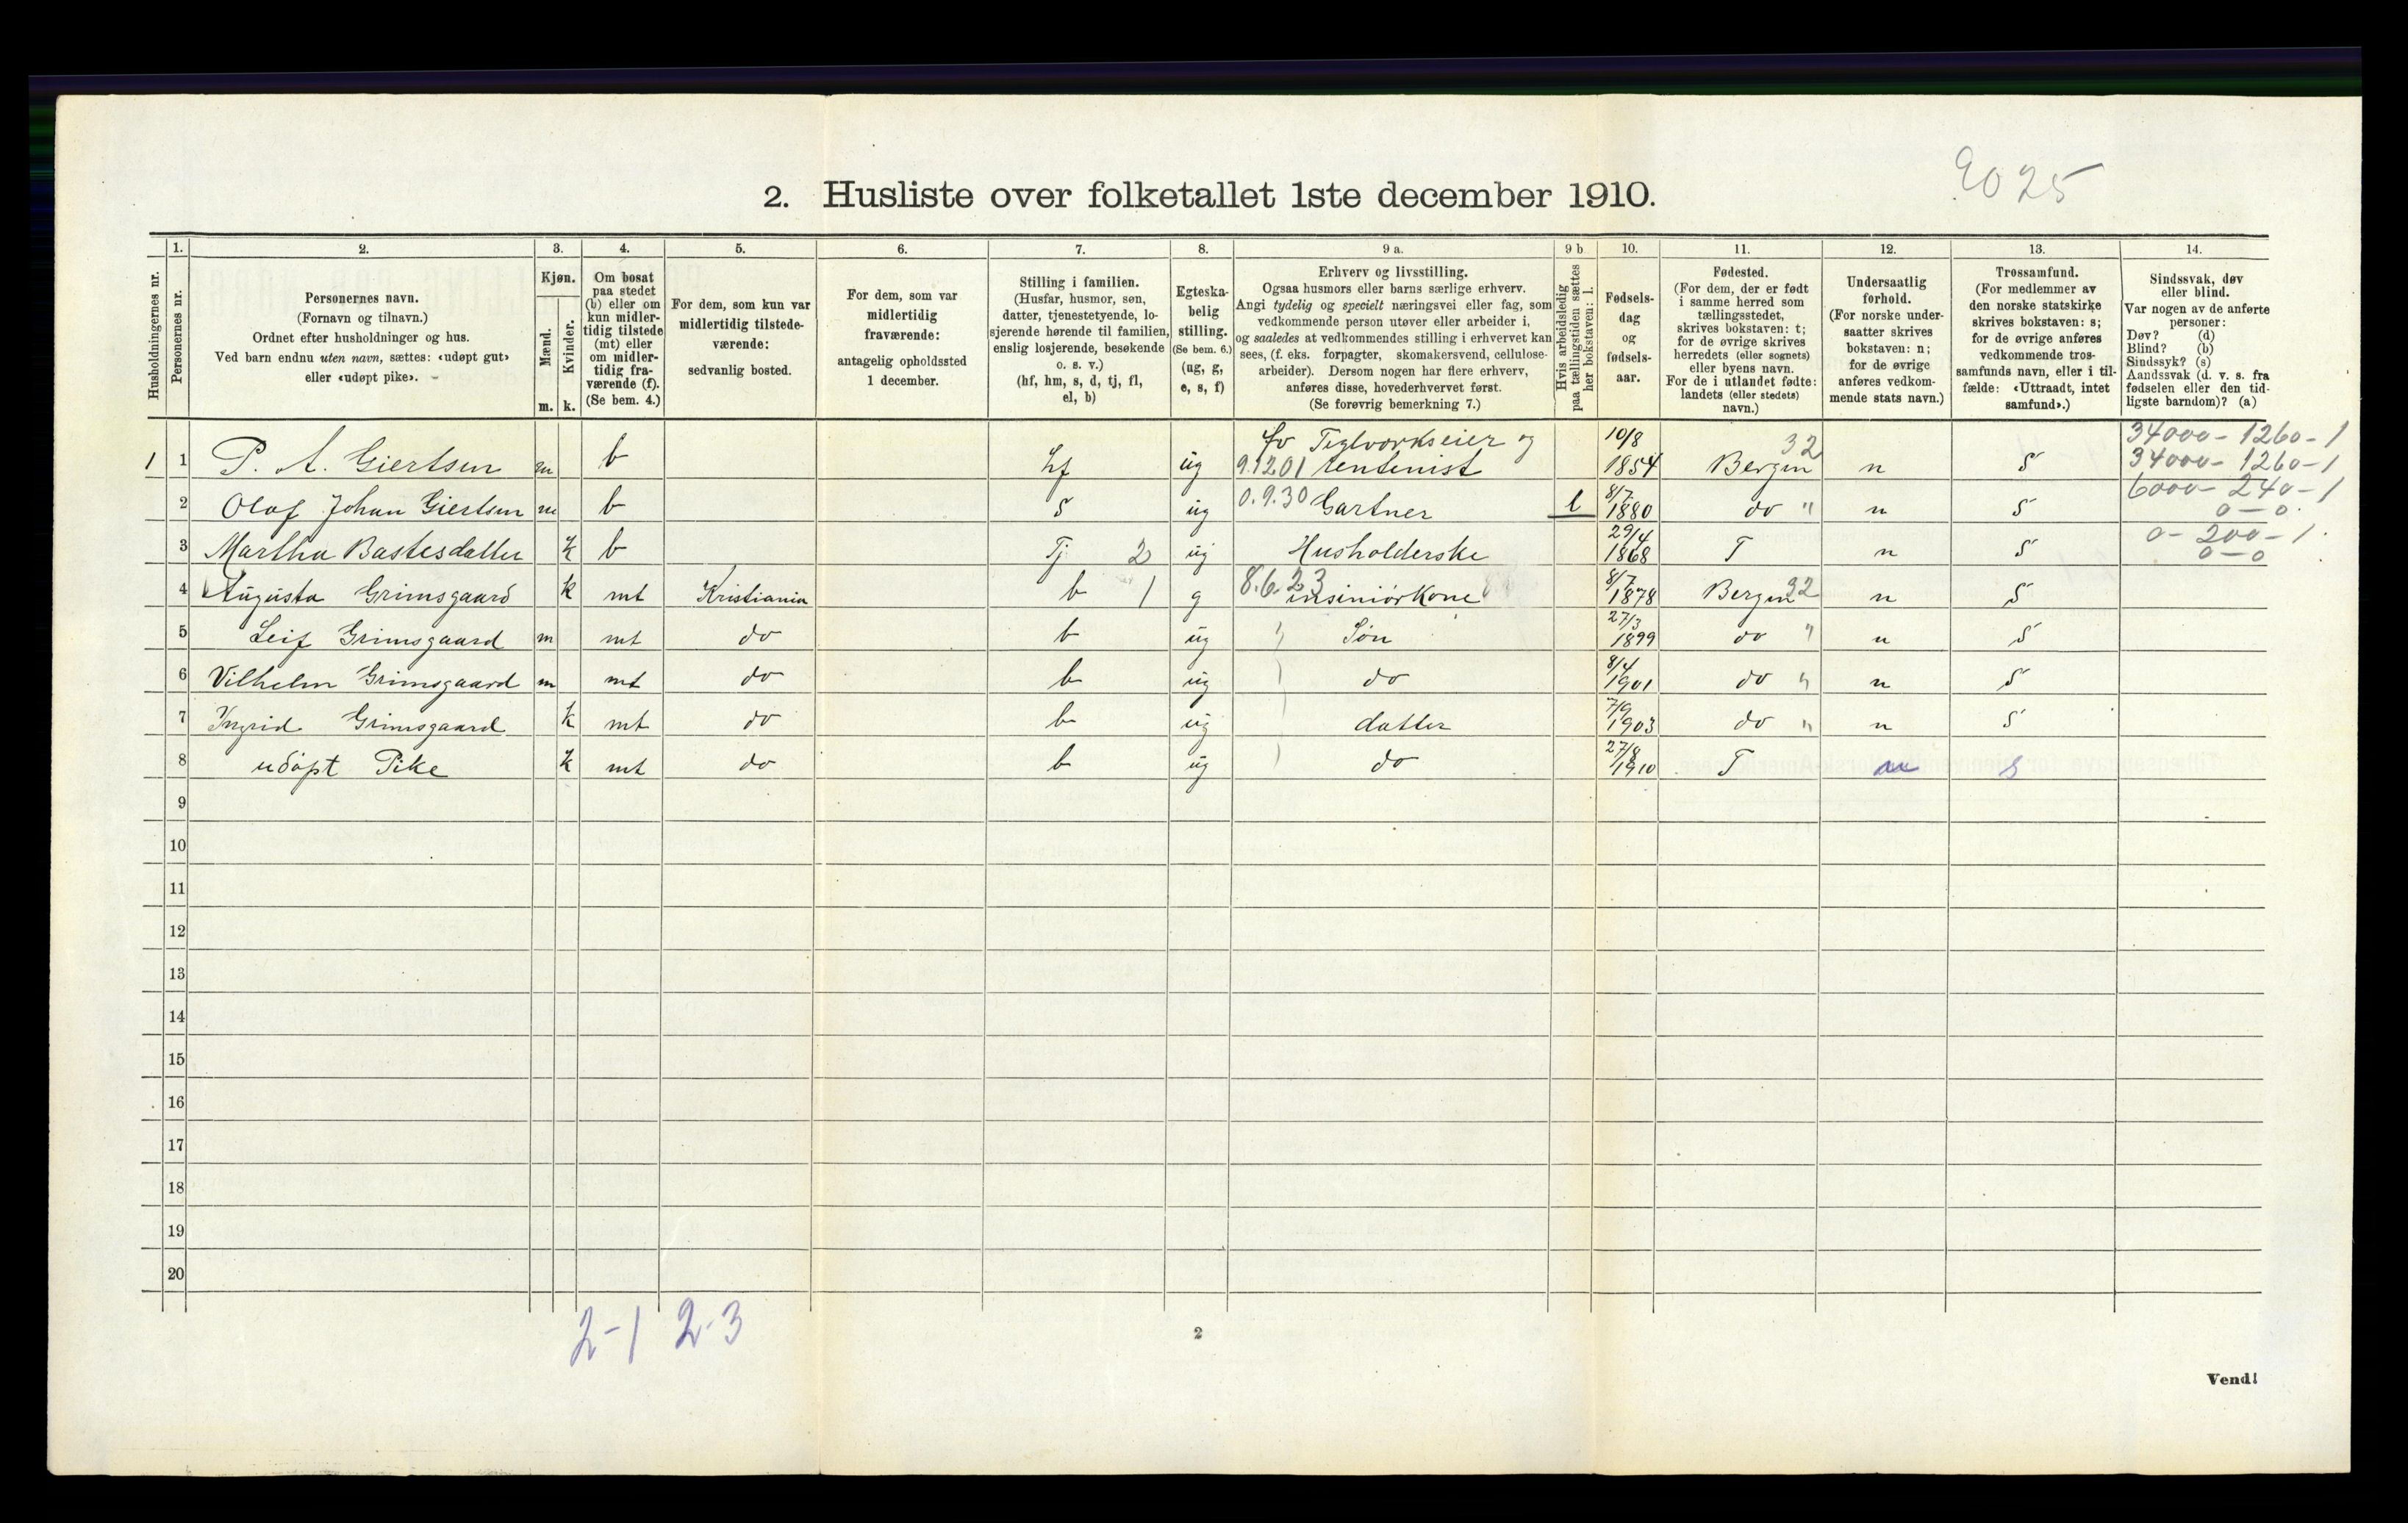 9025
2. Husliste over folketallet 1ste december 1910.
Husholdningernes nr.
1. Personernes nr.
2. Personernes navn.
(Fornavn og tilnavn.)
Ordnet efter husholdninger og hus.
Ved barn endnu uten navn, sættes: «udøpt gut»
eller «udøpt pike».
3. Kjøn.
Mænd. m.
Kvinder. k.
4. Om bosat
paa stedet
(b) eller om
kun midler-
tidig tilstede
(mt) eller
om midler-
tidig fra-
værende (f).
(Se bem. 4.)
5. For dem, som kun var
midlertidig tilstede-
værende:
sedvanlig bosted.
6. For dem, som var
midlertidig
fraværende:
antagelig opholdssted
1 december.
7. Stilling i familien.
(Husfar, husmor, søn,
datter, tjenestetyende, lo-
sjerende hørende til familien,
enslig losjerende, besøkende
o. s. v.)
(hf, hm, s, d, tj, fl,
el, b)
8. Egteska-
belig
stilling.
(Se bem. 6.)
(ug, g,
e, s, f)
9 a. Erhverv og livsstilling.
Ogsaa husmors eller barns særlige erhverv.
Angi tydelig og specielt næringsvei eller fag, som
vedkommende person utøver eller arbeider i,
og saaledes at vedkommendes stilling i erhvervet kan
sees, (f. eks. forpagter, skomakersvend, cellulose-
arbeider). Dersom nogen har flere erhverv,
anføres disse, hovederhvervet først.
(Se forøvrig bemerkning 7.)
9 b Hvis arbeidsledig
paa tællingstiden sættes
her bokstaven: l.
10. Fødsels-
dag
og
fødsels-
aar.
11. Fødested.
(For dem, der er født
i samme herred som
tællingsstedet,
skrives bokstaven: t;
for de øvrige skrives
herredets (eller sognets)
eller byens navn.
For de i utlandet fødte:
landets (eller stedets)
navn.)
12. Undersaatlig
forhold.
(For norske under-
saatter skrives
bokstaven: n;
for de øvrige
anføres vedkom-
mende stats navn.)
13. Trossamfund.
(For medlemmer av
den norske statskirke
skrives bokstaven: s;
for de øvrige anføres
vedkommende tros-
samfunds navn, eller i til-
fælde: «Uttraadt, intet
samfund».)
14. Sindssvak, døv
eller blind.
Var nogen av de anførte
personer:
Døv? (d)
Blind? (b)
Sindssyk? (s)
Aandssvak (d. v. s. fra
fødselen eller den tid-
ligste barndom)? (a)
1 1 P. A. Giertsen m b hf ug fv Teglværkseier og 9.1201 rentenist 10/8 1854 Bergen 32 n S 34000 - 1260 - 1 34000 - 1260 - 1
2 Olaf Johan Giertsen m b S ug 0.9.30 Gartner l 8/7 1880 do " n S 6000 - 240 - 1 0 - 0
3 Martha Bastesdatter k b Tj 2 ug Husholderske 29/4 1868 T n S 0 - 200 - 1 0 - 0
4 Augusta Grimsgaard k mt Kristiania b 1 g 8.6.23 insiniørkone 8/7 1878 Bergen 32 n S
5 Leif Grimsgaard m mt do b ug Søn 27/3 1899 do " n S
6 Vilhelm Grimsgaard m mt do b ug do 8/4 1901 do " n S
7 Ingrid Grimsgaard k mt do b ug datter 7/9 1903 do " n S
8 udøpt Pike k mt do b ug do 27/8 1910 T n S
9
10
11
12
13
14
15
16
17
18
19
20
2-1 2-3
2
Vend!